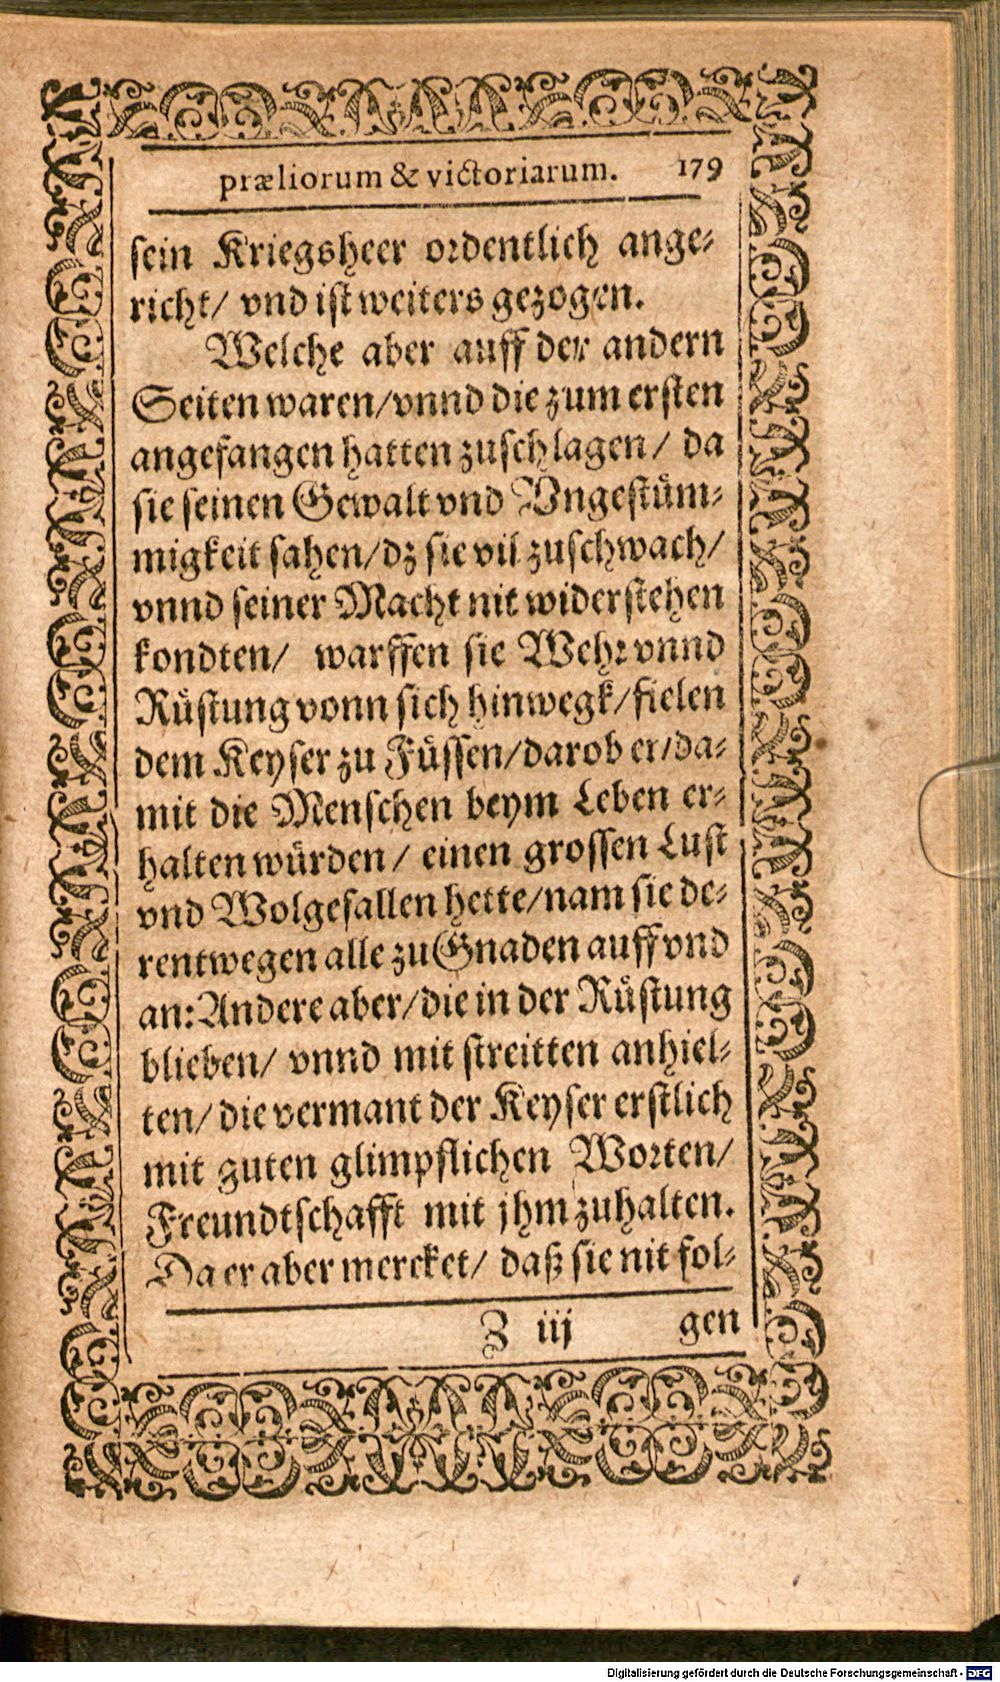 præliorum & victoriarum. 179
sein Kriegsheer ordentlich ange-
richt/ vnd ist weiters gezogen.
Welche aber auff der andern
Seiten waren/vnnd die zum ersten
angefangen hatten zuschlagen/ da
sie seinen Gewalt vnd Vngestüm-
migkeit sahen/dz sie vil zuschwach/
vnnd seiner Macht nit widerstehen
kondten/ warffen sie Wehr vnnd
Rüstung vonn sich hinwegk/fielen
dem Keyser zu Füssen/darob er/da-
mit die Menschen beym Leben er-
halten würden/ einen grossen Lust
vnd Wolgefallen hette/nam sie de-
rentwegen alle zu Gnaden auff vnd
an: Andere aber/die in der Rüstung
blieben/ vnnd mit streitten anhiel-
ten/ die vermant der Keyser erstlich
mit guten glimpflichen Worten/
Freundtschafft mit jhm zuhalten.
Da er aber mercket/ daß sie nit fol-
Z iij gen
Digitalisierung gefördert durch die Deutsche Forschungsgemeinschaft - DFG